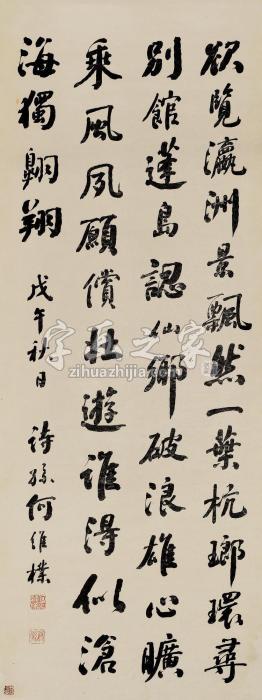 欲覽瀛洲景飄然一葉杭瑯環尋
別館蓬島認仙鄉破浪雄心曠
乘風夙願償壯遊誰得似滄
海獨翱翔
戊午秋日
詩孫何維樸
字画之家
zihuazhijia.com